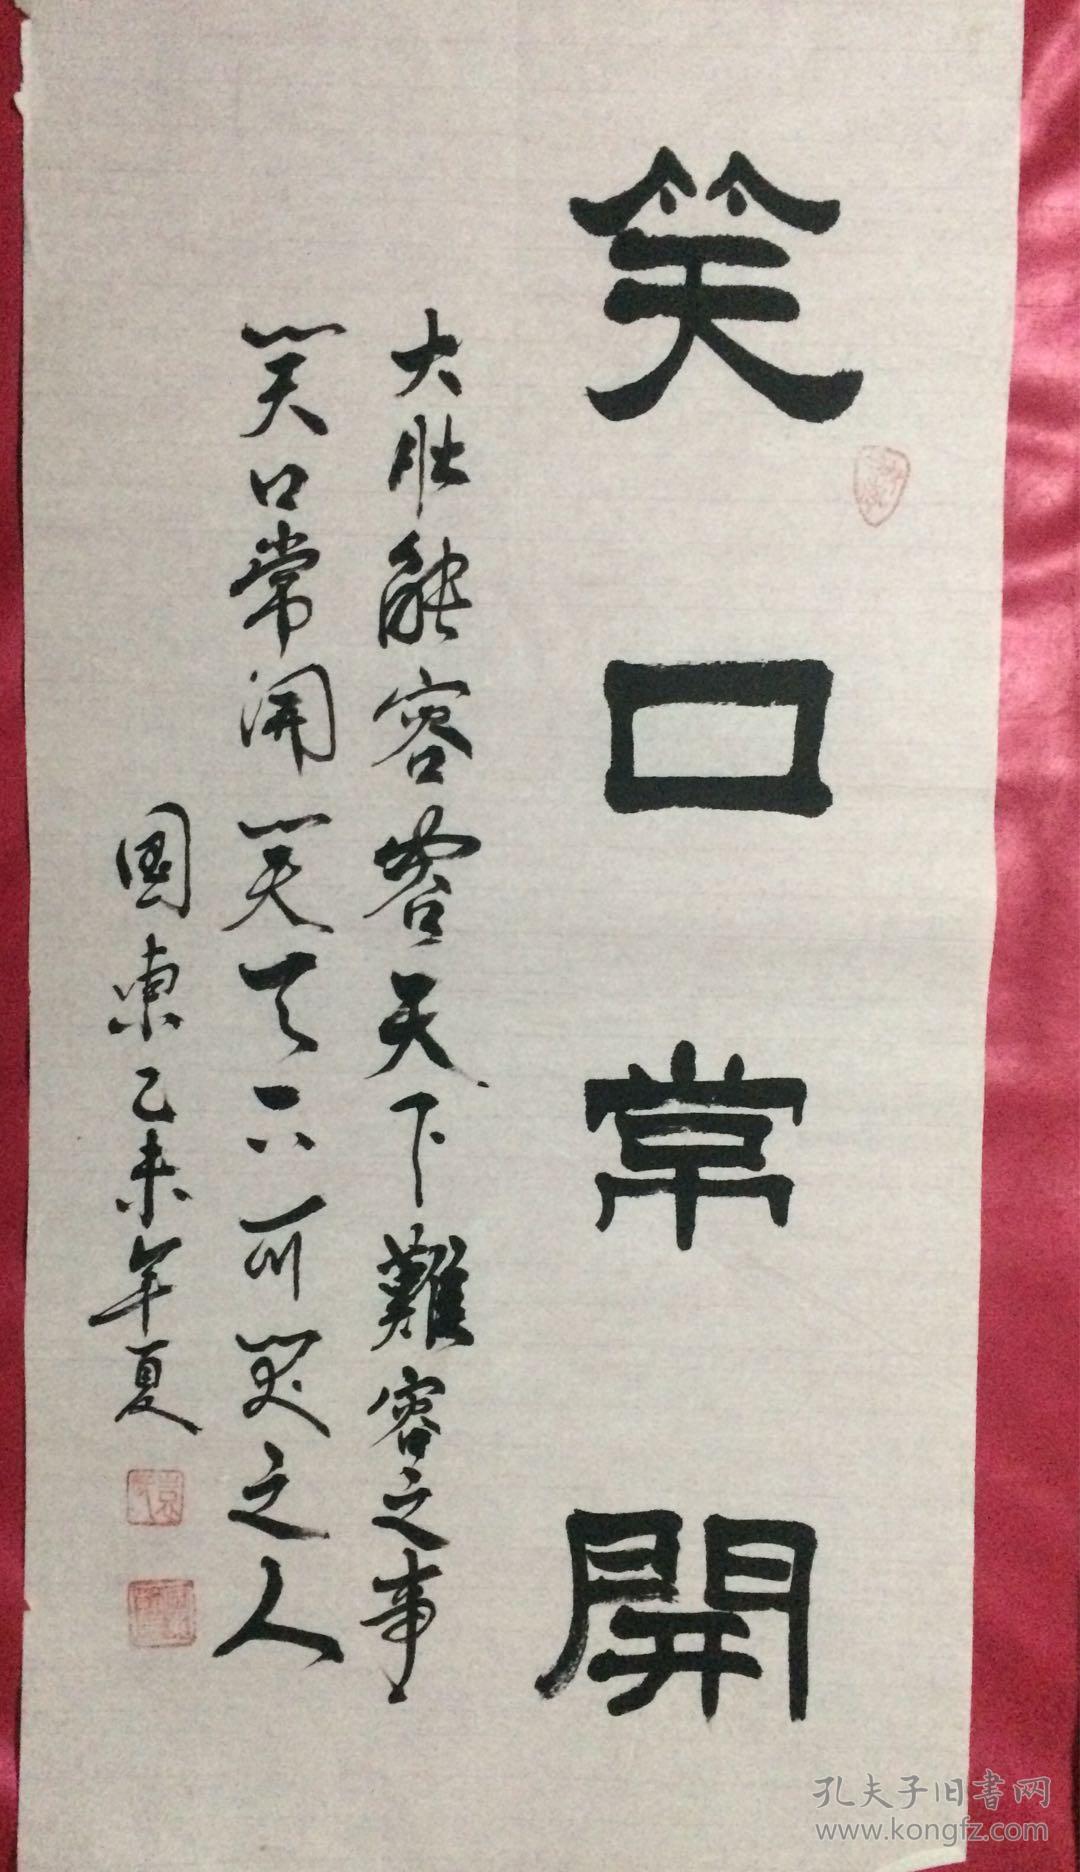 笑口常開
大肚能容容天下難容之事
笑口常開笑天下可笑之人
國東乙未年夏
孔夫子旧书网
www.kongfz.com